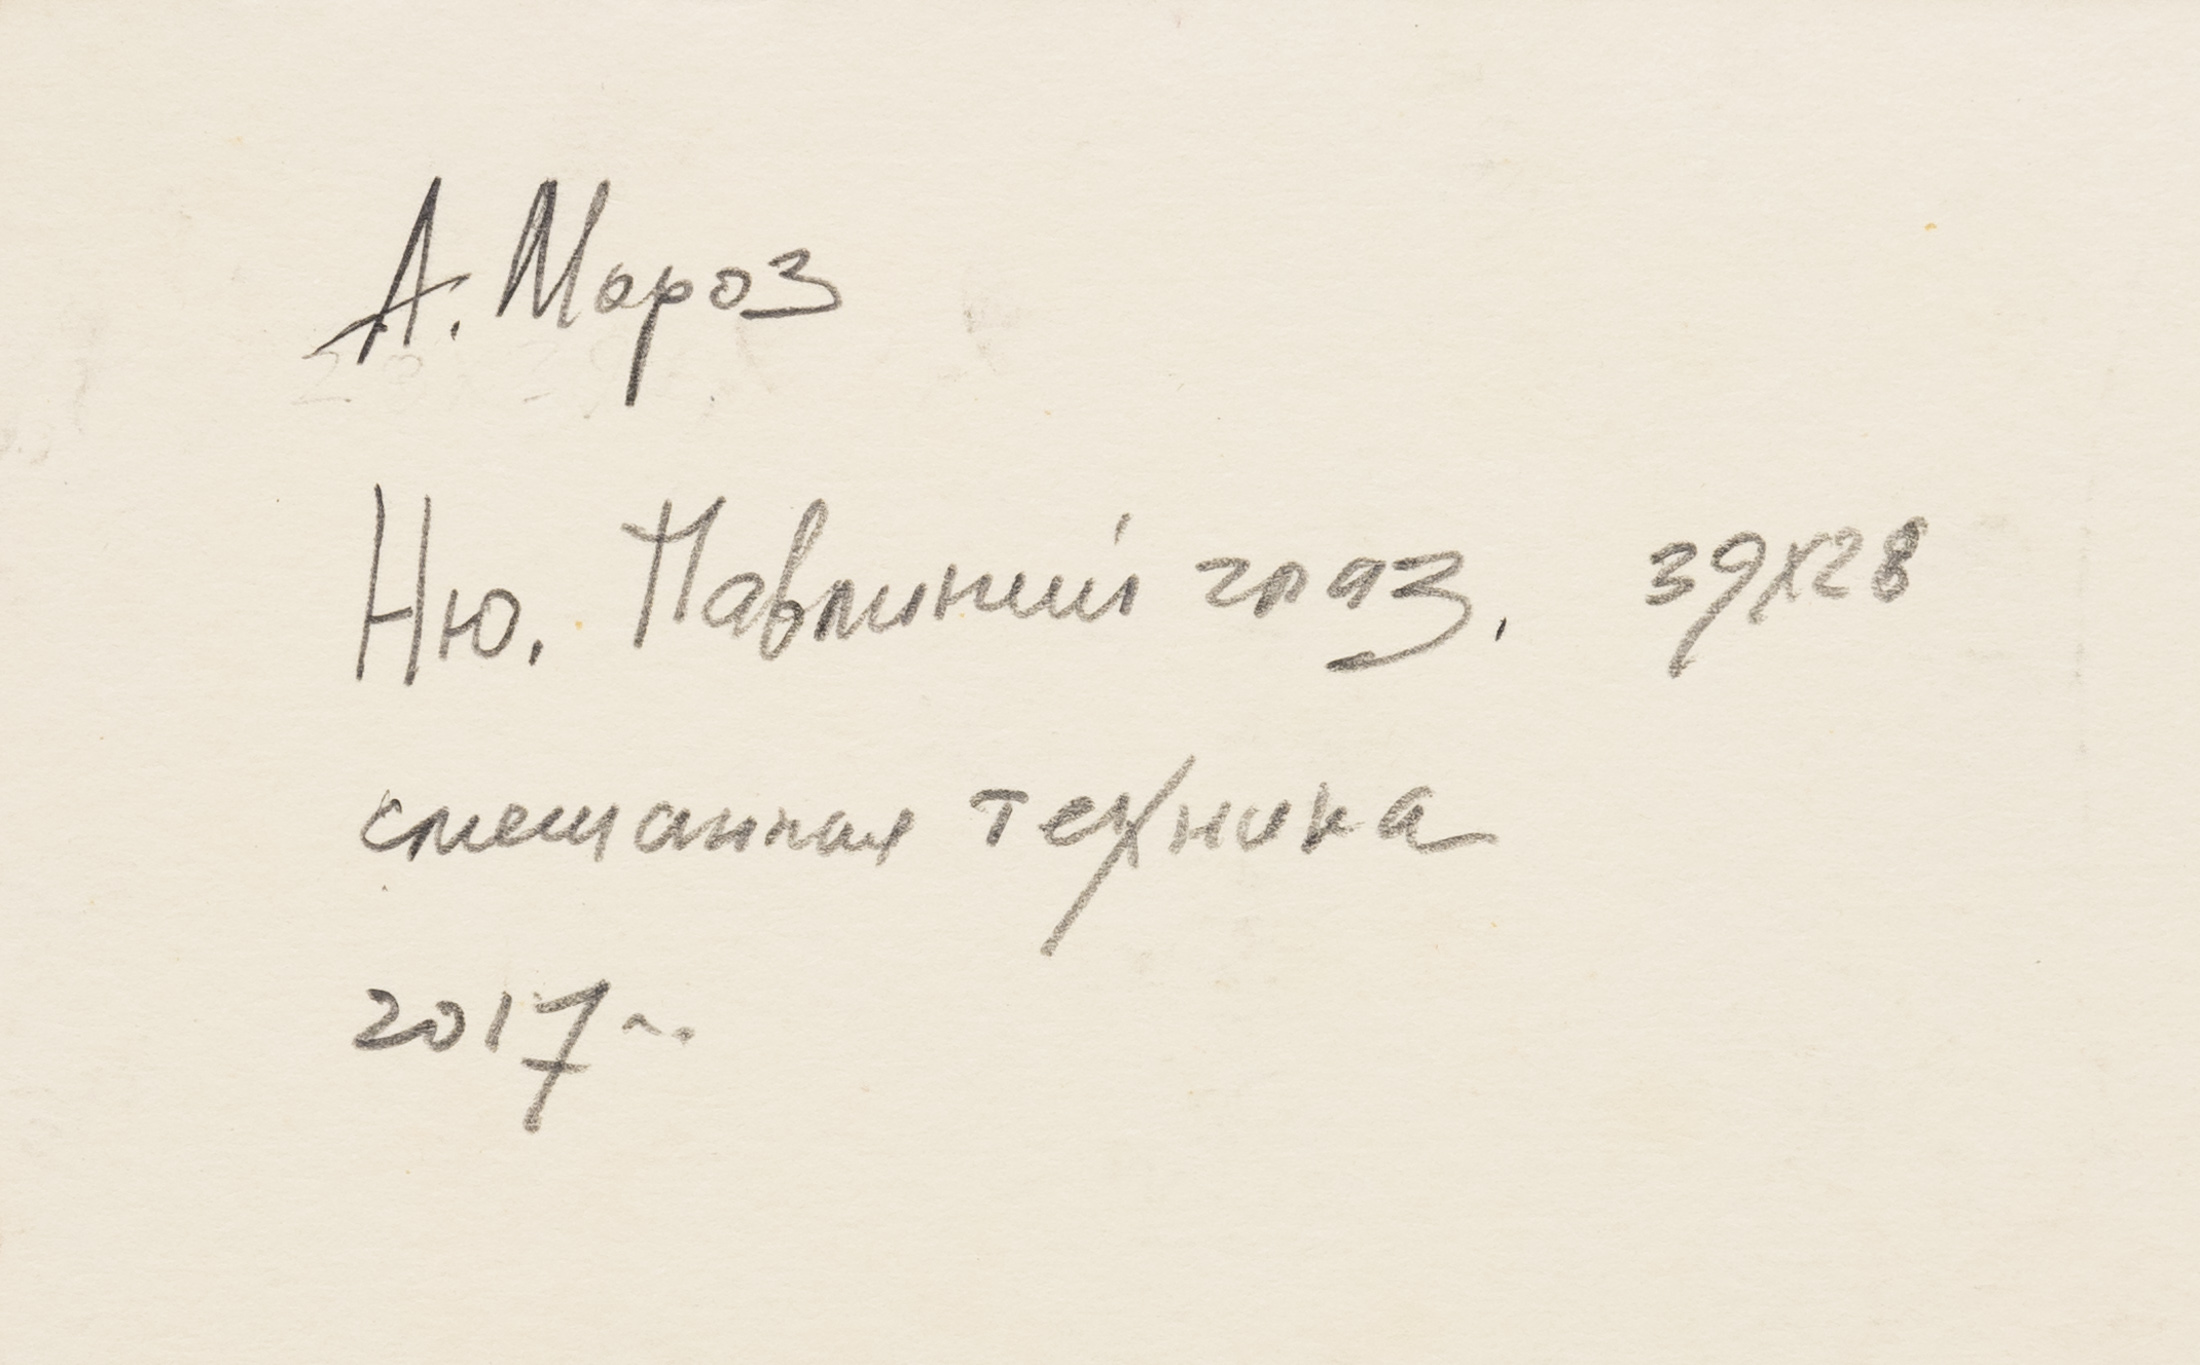 А. Мороз
Ню. Павлиний глаз. 39х28
смешанная техника
2017г.